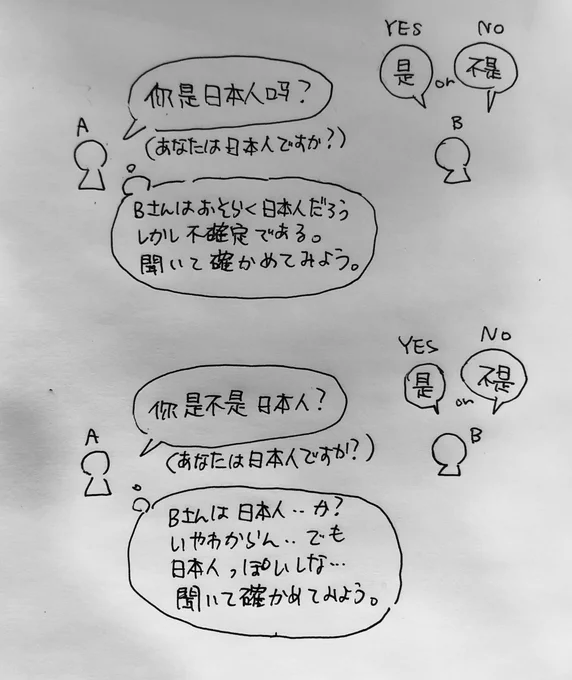 YES NO
是 or 不是
你是日本人吗?
A
(あなたは日本人ですか?)
B
Bさんはおそらく日本人だろう
しかし不確定である。
聞いて確かめてみよう。
YES NO
是 or 不是
你是不是日本人?
A
(あなたは日本人ですか?)
B
Bさんは日本人‥か?
いやわからん‥でも
日本人っぽいしな…
聞いて確かめてみよう。